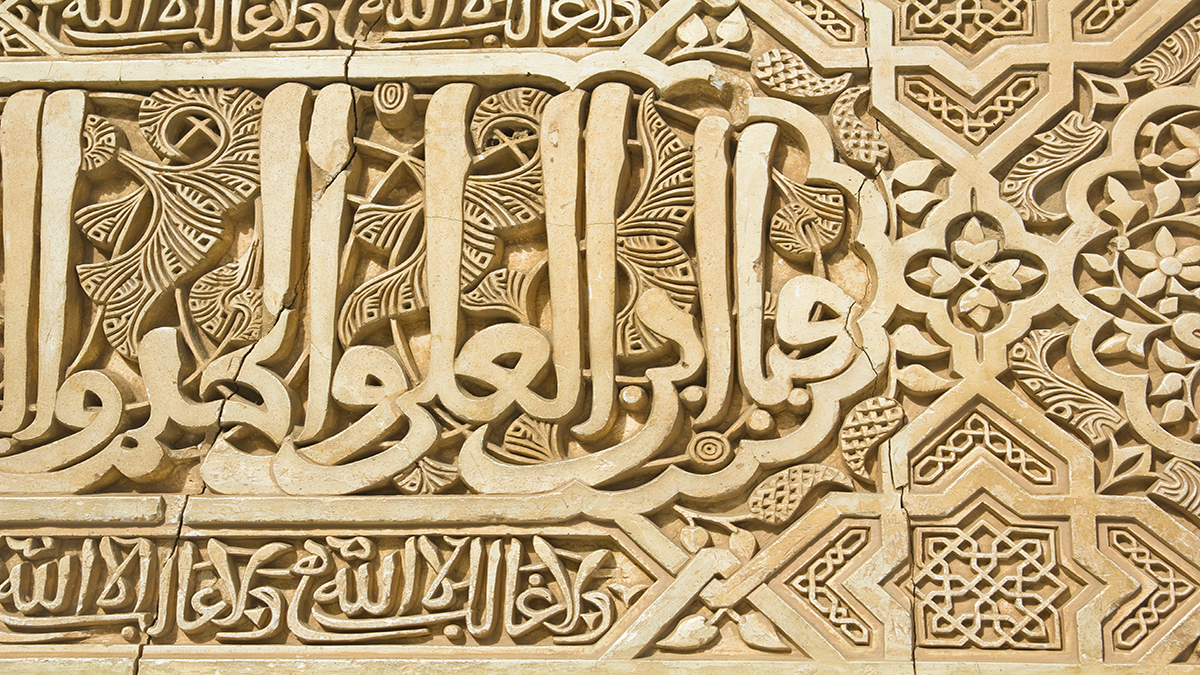 ولا غالب إلا الله ولا غالب إلا الله
فيا ابن العلى والحلم وال
ولا غالب إلا الله ولا غالب إلا الله